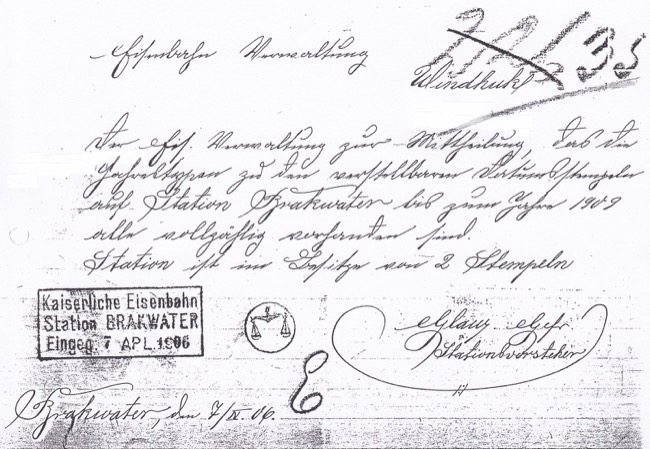 Eisenbahn Verwaltung
Windhuk
Der Eis. Verwaltung zur Mittheilung, das die
Jahrestypen zu den verstellbaren Datumsstempeln
auf Station Brakwater bis zum Jahre 1909
alle vollzählig vorhanden sind.
Station ist im Besitze von 2 Stempeln
Kaiserliche Eisenbahn
Station BRAKWATER
Eingeg. 7 APL. 1906
Stationsvorsteher
Brakwater, den 7/IV. 06.